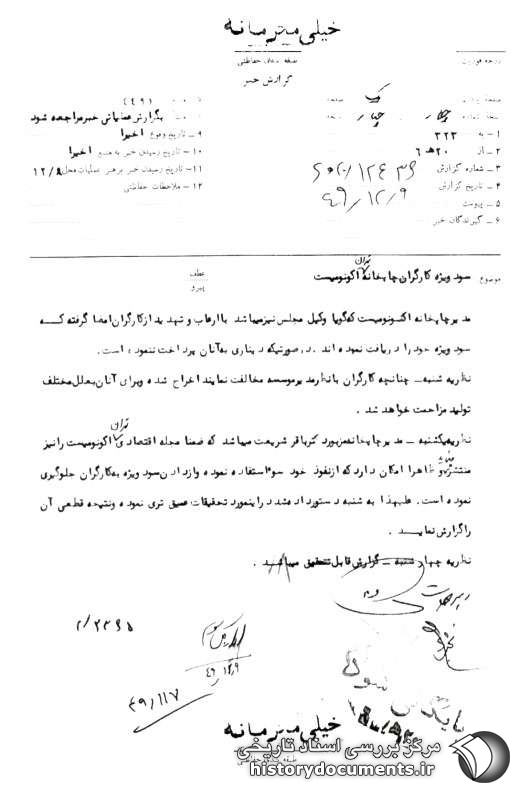 خیلی محرمانه
طبقه بندی حفاظتی
گزارش خبر
درجه فوریت
۱ – به ۳۲۲
۲ – از ۲۰ هـ ۶
۳ – شماره گزارش
۴ – تاریخ گزارش ۴۹/۱۲/۹
۵ – پیوست
۶ – گیرندگان خبر
بگزارش عملیاتی خبر مراجعه شود
۹ – تاریخ وقوع اخیرا
۱۰ – تاریخ رسیدن خبر به منبع اخیرا
۱۱ – تاریخ رسیدن خبر برهبر عملیات محل ۱۲/۸
۱۲ – ملاحظات حفاظتی
موضوع سود ویژه کارگران چاپخانه تهران اکونومیست
عطف
پیرو
مدیر چاپخانه اکونومیست که گویا وکیل مجلس نیز میباشد با ارعاب و تهدید از کارگران امضا گرفته که
سود ویژه خود را دریافت نموده اند . در صورتیکه دیناری به آنان پرداخت ننموده است.
نظریه شنبه – چنانچه کارگران با نظر مدیر موسسه مخالفت نمایند اخراج شده و برای آنان بعلل مختلف
تولید مزاحمت خواهد شد .
نظریه یکشنبه – مدیر چاپخانه مزبور دکتر باقر شریعت میباشد که ضمنا مجله اقتصادی تهران اکونومیست را نیز
منتشر مینماید و ظاهرا امکان دارد که از نفوذ خود سوء استفاده نموده و از دادن سود ویژه به کارگران جلوگیری
نموده است. علیهذا به شنبه دستور داده شد در اینمورد تحقیقات عمیق تری نموده و نتیجه قطعی آن
را گزارش نماید .
نظریه چهارشنبه – گزارش قابل تحقیق میباشد .
۴۹/۱۲/۹
خیلی محرمانه
مرکز بررسی اسناد تاریخی
historydocuments.ir